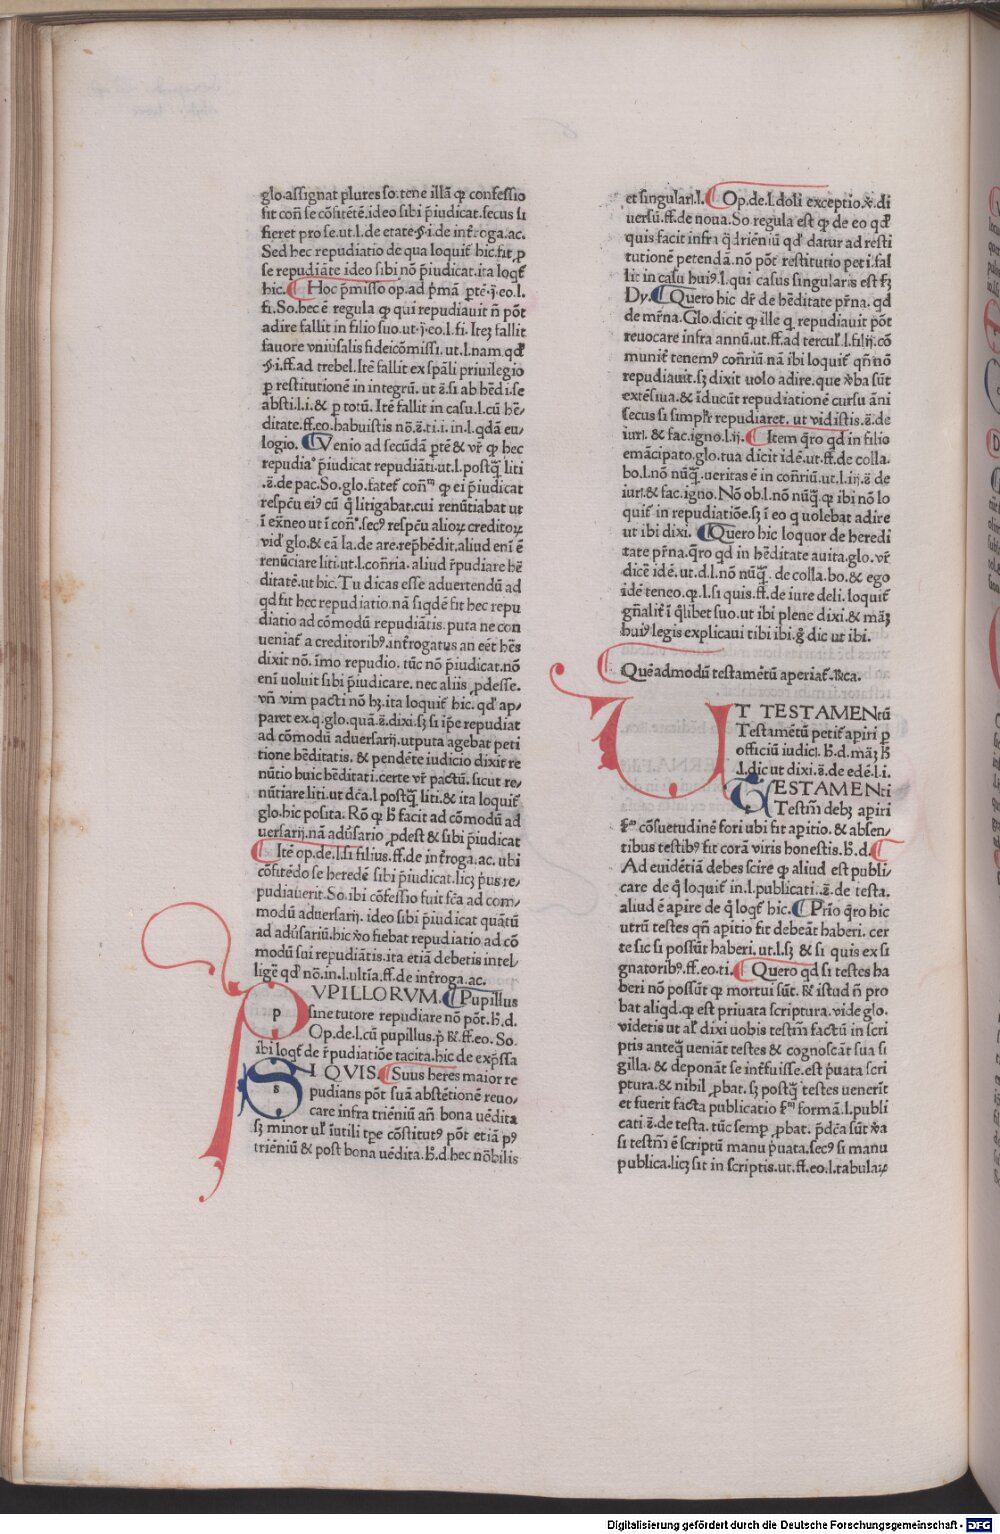 glo.assignat plures so.tene illā ꝙ confessio
sit con̄ se cōsitētē.ideo sibi p̄iudicat.secus si
fieret pro se.ut.l.de etate.§.i.de int̄roga.ac.
Sed hec repudiatio de qua loquit᷑ hic.fit ꝓ
se repudiāte ideo sibi nō p̄iudicat.ita loqt᷑
hic. Hoc p̄misso op.ad p̄mā ꝑtē.ȷ̄.eo.l.
fi.So.hec ē regula ꝙ qui repudiauit n̄ pōt
adire fallit in filio suo.ut.ȷ̄.eo.l.fi.Iteȝ fallit
fauore vniūsalis fideicōmissi.ut.l.nam.qđ
§.i.ff.ad trebel.Itē fallit ex sp̄ali priuilegio
ꝑ restitutionē in integrū.ut.ē.si ab hēdi.se
absti.l.i.& ꝑ totū. Itē fallit in casu.l.cū hē-
ditate.ff.eo.habuistis nō.ē.ti.i.in.l.qdā eu-
logio. Venio ad secūdā ꝑtē & vr̄ ꝙ hec
repudia° p̄iudicat repudiāti.ut.l.postq̄ liti
.ē.de pac.So.glo.fatet᷑ con̄ᵐ ꝙ ei p̄iudicat
respc̄u ei⁹ cū q̄ litigabat.cui renūtiabat ut
ī ex̄neo ut ī con̄°.sec⁹ respc̄u alioꝝ creditoꝝ
vid̄ glo.& eā la.de are.rep̄hēdit.aliud eni ē
renūciare liti.ut.l.con̄ria.aliud r̄pudiare hē
ditatē.ut hic.Tu dicas esse aduertendū ad
qd fit hec repudiatio.nā siqdē fit hec repu
diatio ad cōmodū repudiātis.puta ne con
ueniat᷑ a creditorib⁹.int̄rogatus an eēt hēs
dixit nō. īmo repudio. tūc nō p̄iudicat.nō
enī uoluit sibi p̄iudicare.nec aliis ꝓdesse.
vn̄ vim pacti nō hȝ.ita loquit᷑ hic.qđ ap-
paret ex.q.glo.quā.ē.dixi.sȝ si ip̄e repudiat
ad cōmodū aduersarij.utputa agebat peti
tione hēditatis.& pendēte iudicio dixit re
nūtio huic hēditati.certe vr̄ pactū.sicut re-
nūtiare liti.ut dc̄a.l.postq̄ liti.& ita loquit᷑
glo.hic posita. Rō ꝙ hͦ facit ad cōmodū ad
uersarij.nā adūsario ꝓdest & sibi p̄iudicat
Itē op.de.l.si filius.ff.de int̄roga.ac. ubi
cōsitēdo se heredē sibi p̄iudicat.licȝ p̄us re-
pudiauerit.So.ibi cōfessio fuit fc̄a ad com-
modū aduersarij. ideo sibi p̄iudicat quātū
ad adūsariū.hic v̄o fiebat repudiatio ad cō
modū sui repudiātis.ita etiā debetis intel-
ligē qđ nō.in.l.ultīa.ff.de int̄roga.ac.
PVPILLORVM. Pupillus
sine tutore repudiare nō pōt.h̄.d.
Op.de.l.cū pupillus.p̄ &.ff.eo. So.
ibi loqt᷑ de r̄pudiatiōe tacita.hic de exp̄ssa
SI QVIS. Suus heres maior re
pudians pōt suā abstētionē reuo-
care infra triēniū an̄ bona uēdita
sȝ minor ul̄ īutili tꝑe cōstitut⁹ pōt etiā p⁹
triēniū & post bona uēdita.h̄.d.hec nōbilis
et singulari.l. Op.de.l.doli exceptio.v̄.di
uersū.ff.de noua.So.regula est ꝙ de eo qđ
quis facit infra q̄driēniū qđ datur ad resti
tutionē petendā.nō pōt restitutio peti.fal
lit in casu hui⁹.l.qui casus singularis est fȝ
Dy. Quero hic dr̄ de hēditate pr̄na. qd
de mr̄na.Glo.dicit ꝙ ille q repudiauit pōt
reuocare infra annū.ut.ff.ad tercul̄.l.filij.cō
munit᷑ tenem⁹ con̄riū nā ibi loquit᷑ qn̄ nō
repudiauit.sȝ dixit uolo adire.que v̄ba sūt
extēsiua.& īducūt repudiationē cursu āni
secus si simpl̄r repudiaret. ut vidistis.ē.de
iuri. & fac.igno.l.ij. Item q̄ro qd in filio
emācipato.glo.tua dicit idē.ut.ff.de colla.
bo.l.nō nūq̄.ueritas ē in con̄riū.ut.l.ij.ē.de
iuri.& fac.igno. Nō ob.l.nō nūq̄.ꝙ ibi nō lo
quit᷑ in repudiatiōe.sȝ ī eo q uolebat adire
ut ibi dixi. Quero hic loquor de heredi
tate pr̄na.q̄ro qd in hēditate auita.glo.vr̄
dicē idē.ut.d.l.nō nūq̄. de colla.bo.& ego
īdē teneo.ꝙ.l.si quis.ff.de iure deli.loquit᷑
gn̄alit᷑ ī q̄libet suo.ut ibi plene dixi.& māȝ
hui⁹ legis explicaui tibi ibi.g̊ dic ut ibi.
Quēadmodū testamētū aperiat᷑.Rͨca.
UT TESTAMENtū
Testamētū petit᷑ apiri ꝑ
officiū iudicl.h̄.d.māȝ h̄
.l.dic ut dixi.ē.de edē.l.i.
TESTAMENti
Testm̄ debȝ apiri
fᵐ cōsuetudinē fori ubi fit apitio. & absen-
tibus testib⁹ fit corā viris honestis.h̄.d.
Ad euidētiā debes scire ꝙ aliud est publi-
care de q̄ loquit᷑ in.l.publicati..ē.de testa.
aliud ē apire de q̄ loqt᷑ hic. Prīo q̄ro hic
utrū testes qn̄ apitio fit debeāt haberi. cer
te sic si possūt haberi.ut.l.sȝ & si quis ex si
gnatorib⁹.ff.eo.ti. Quero qd si testes ha
beri nō possūt ꝙ mortui sūt. & istud n̄ pro
bat aliqd.ꝙ est priuata scriptura.vide glo.
videtis ut al̄ dixi uobis testm̄ factū in scri
ptis anteq̄ ueniāt testes & cognoscāt sua si
gilla.& deponāt se int̄fuisse.est p̄uata scri
ptura.& nihil ꝓbat.sȝ postq̄ testes uenerīt
et fuerit facta publicatio fᵐ formā.l.publi
cati.ē.de testa. tūc semꝑ ꝓbat. p̄dc̄a sūt v̄a
si testm̄ ē scriptū manu p̄uata.sec⁹ si manu
publica.licȝ sit in scriptis.ut.ff.eo.l.tabulaꝝ
Digitalisierung gefördert durch die Deutsche Forschungsgemeinschaft - DFG